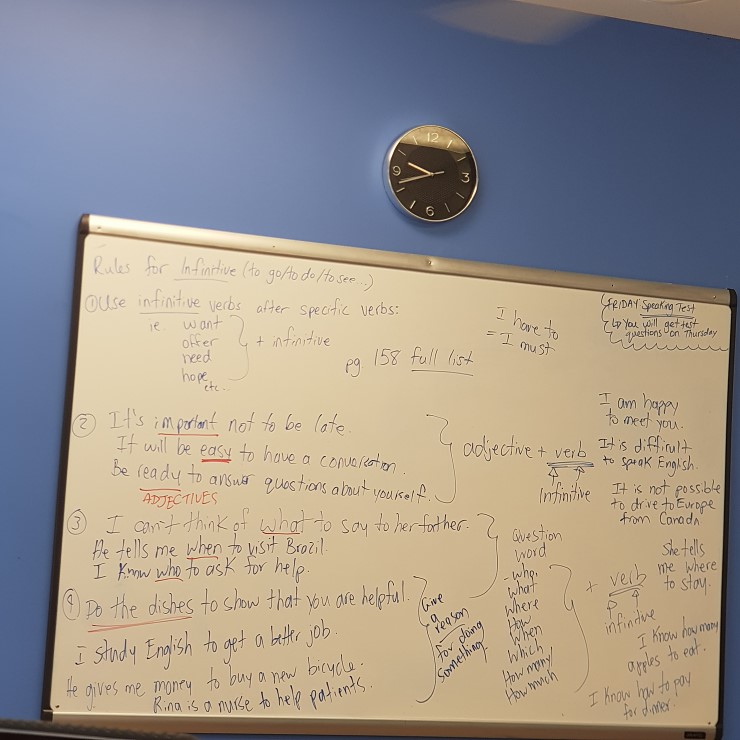 12
3
6
9
Rules for Infinitive (to go/to do/to see...)
① Use infinitive verbs after specific verbs:
ie. want
offer
need
hope
etc..
+ infinitive
pg. 158 full list
I have to
= I must
FRIDAY Speaking Test
↳ You will get test
questions on Thursday
② It's important not to be late.
It will be easy to have a conversation.
Be ready to answer questions about yourself.
ADJECTIVES
adjective + verb
Infinitive
I am happy
to meet you.
It is difficult
to speak English.
It is not possible
to drive to Europe
from Canada
③ I can't think of what to say to her father.
He tells me when to visit Brazil.
I know who to ask for help.
Question
word
- who,
what
where
How
When
Which
How many/
How much
+ verb
infinitive
She tells
me where
to stay.
I know how many
apples to eat.
I know how to pay
for dinner.
④ Do the dishes to show that you are helpful.
I study English to get a better job.
He gives me money to buy a new bicycle.
Rina is a nurse to help patients.
Give
a
reason
for doing
something